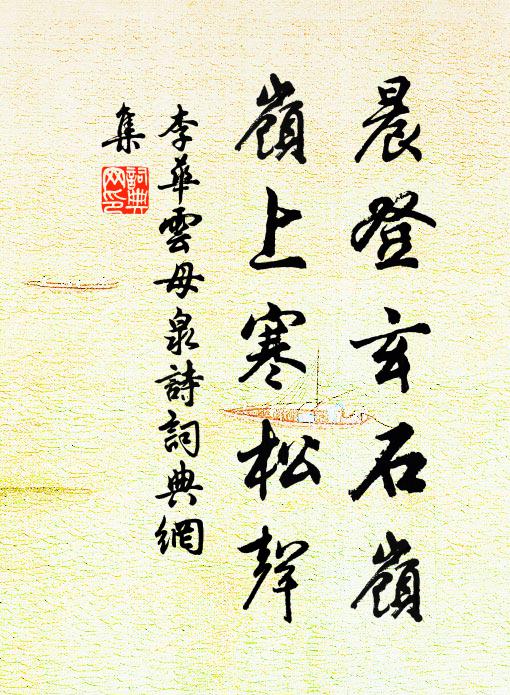 晨登玄石嶺
嶺上寒松聲
李華雲母泉詩詞典網
集
詞典網印